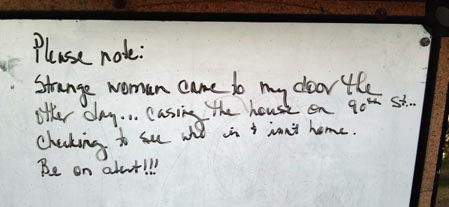 Please note:
Strange woman came to my door the
other day... casing the house on 90th St...
checking to see who is & isn't home.
Be on alert!!!